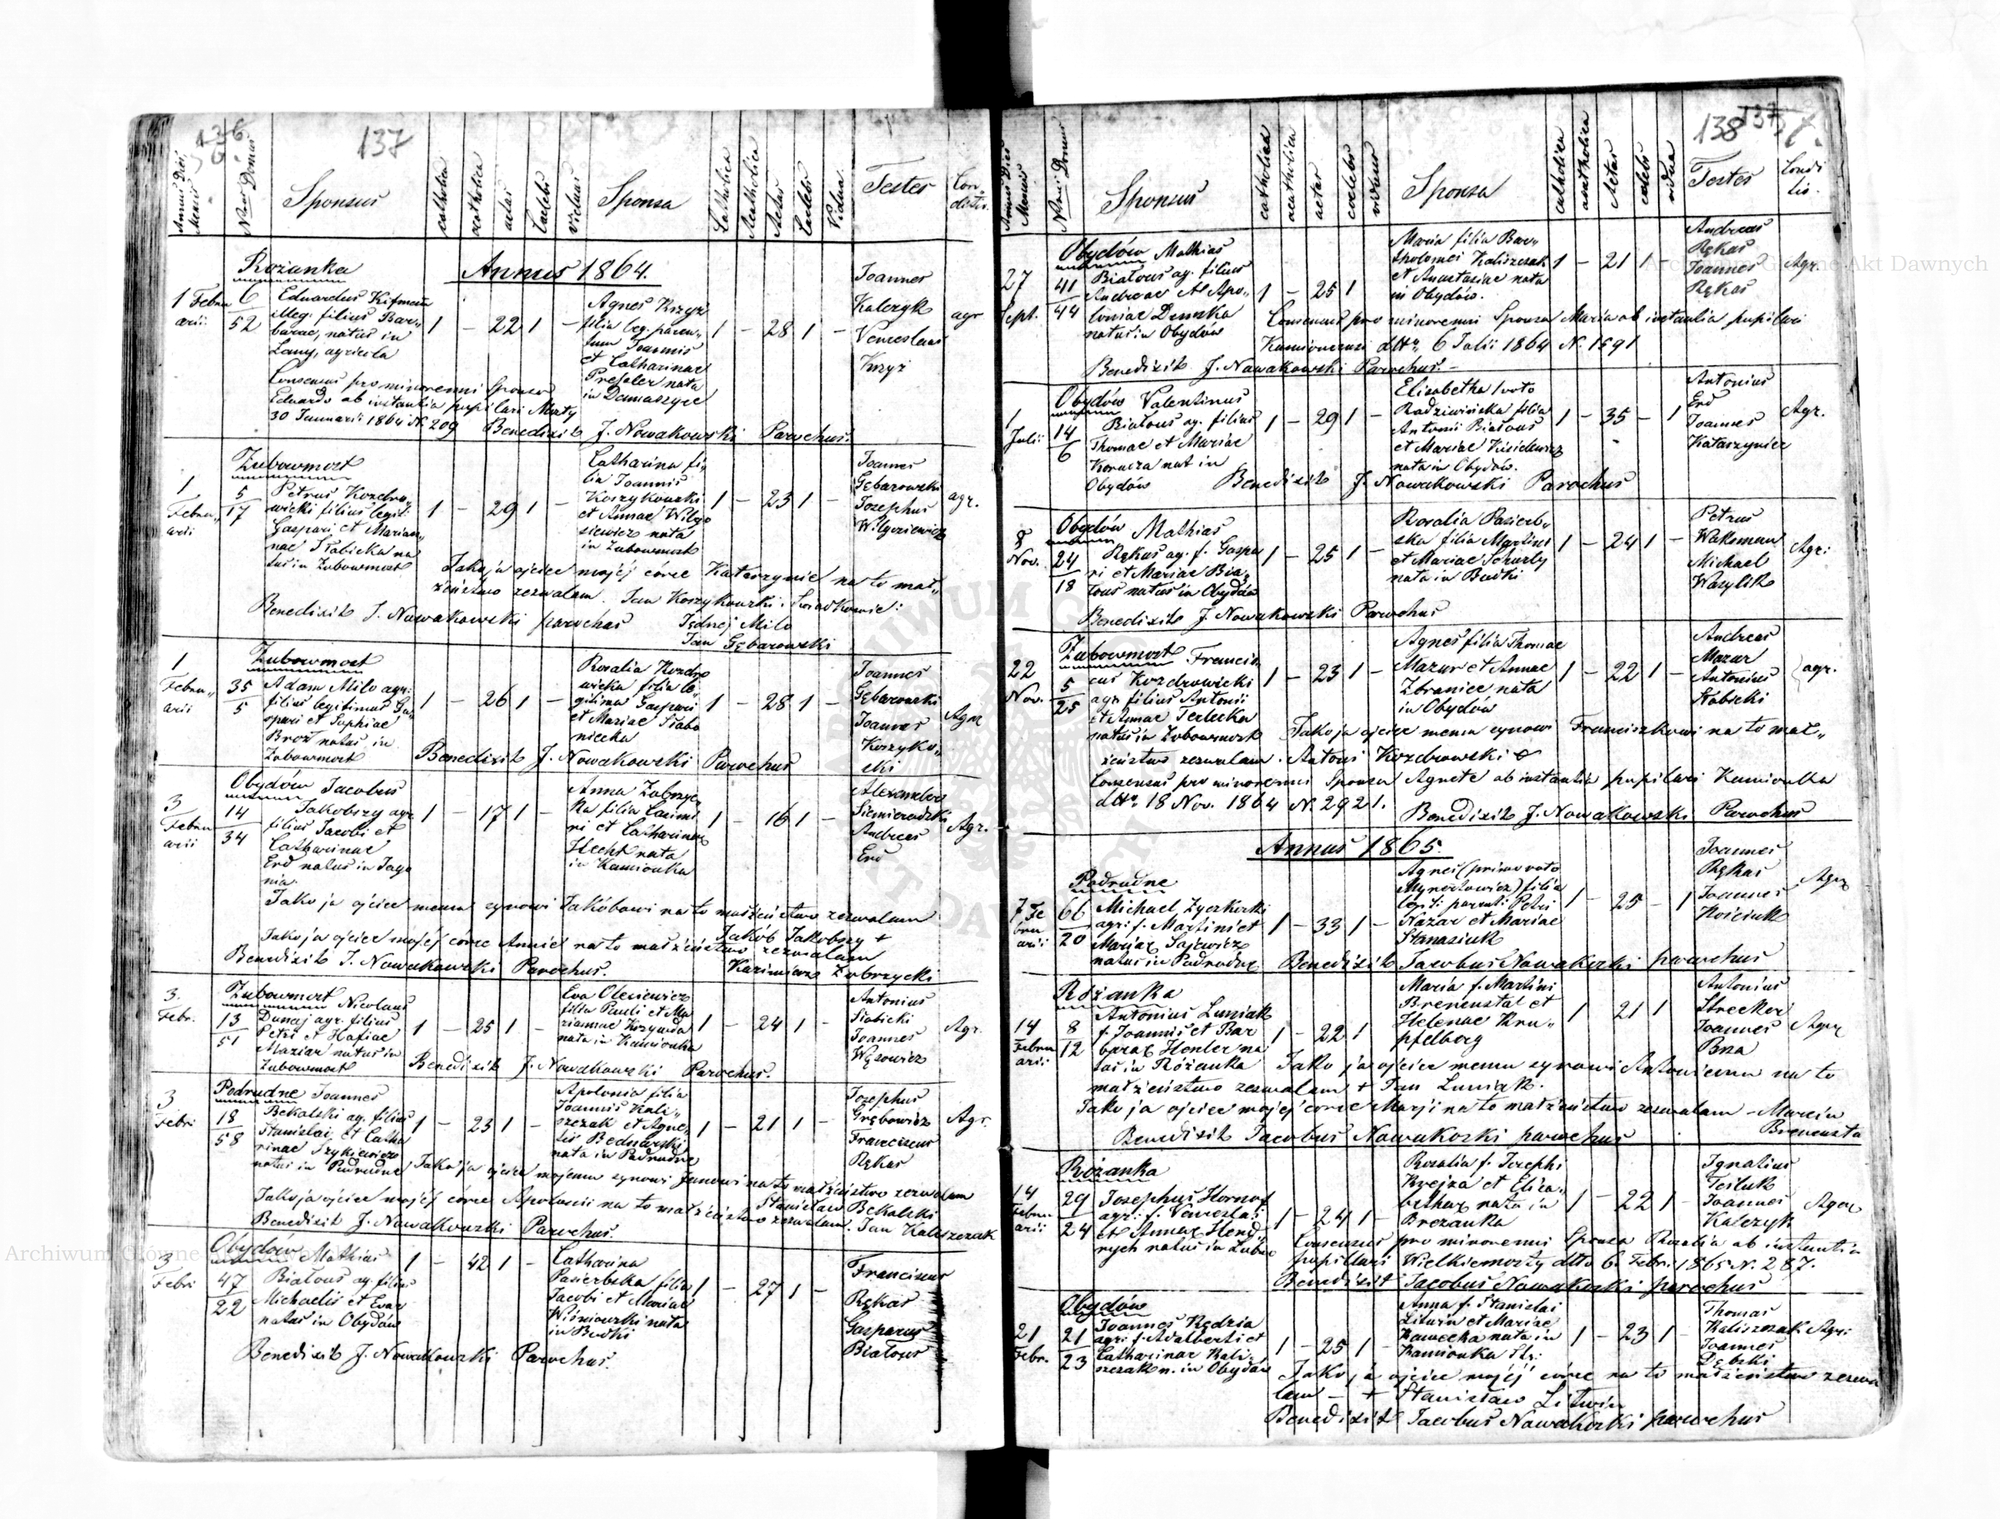 136
137
Annus Dies Mensis
Nrus Domus
Sponsus
catholica
acatholica
aetas
Caelebs
viduus
Sponsa
Catholica
Acatholica
Aetas
Caelebs
Vidua
Testes
Conditio
Annus 1864.
Rożanka
1 Februarii
6
52
illeg. filius Barbarae, natus in
Lany, agricola
1 - 22 1 -
Agnes Krzyż
filia leg. parentum Joannis
et Catharinae
Presler nata
in Damaszyce
1 - 28 1 -
Joannes
Kalczyk
Venceslaus
Krzyż
agr
Consensus pro minorenni Sponso
Eduardo ab instantia pupilari Mosty
30 Januarii 1864 N. 209 Benedixit J. Nowakowski Parochus.
Zubowmost
1 Februarii
5
17
Petrus Kozdrowicki filius legit.
Gaspari et Mariannae Słabicka natus in Zubowmost
1 - 29 1 -
Catharina filia Joannis
Koszykowski
et Annae Wilgosiewicz nata
in Zubowmost
1 - 23 1 -
Joannes
Gębarowski
Josephus
Wilgosiewicz
agr.
Jako ja ojciec mojéj córce Katarzynie na to małżeństwo zezwalam. Jan Koszykowski. Świadkowie:
Benedixit J. Nowakowski parochus
Jędrzej Milo
Jan Gębarowski
Zubowmost
1 Februarii
35
5
Adam Milo agr.
filius legitimus Gaspari et Sophiae
Broż natus in
Zubowmost
1 - 26 1 -
Rosalia Kozdrowicka filia legitima Gaspari
et Mariae
1 - 28 1 -
Joannes
Gębarowski
Joannes
Koszykowski
Agr
Benedixit J. Nowakowski Parochus
Obydów Jacobus
3 Februarii
14
34
Jakobszy agr.
filius Jacobi et
Catharinae
Erd natus in Jagonia
1 - 17 1 -
Anna Zobrzycka filia Casimiri et Catharinae
Hecht nata
in Kamionka
1 - 16 1 -
Alexander
Siemieradzki
Andreas
Erd
Agr.
Jako ja ojciec memu synowi Jakóbowi na to małżeństwo zezwalam
Jakób Jakobszy +
Jako ja ojciec mojéj córce Annie na to małżeństwo zezwalam
Benedixit J. Nowakowski Parochus. Kazimierz Zobrzycki
Zubowmost Nicolaus
3. Febr.
13
51
Dunaj agr. filius
Petri et Hafiae
Maziar natus in
Zubowmost
1 - 25 1 -
Eva Olesiewicz
filia Pauli et Mariannae
nata in Kamionka
1 - 24 1 -
Antonius
Słabicki
Joannes
Wąsowicz
Agr.
Benedixit J. Nowakowski Parochus.
Podrudne Joannes
3 Febr
18
58
Bekalski ag. filius
Stanislai et Catharinae Szykiewicz
natus in Podrudne
1 - 23 1 -
Apolonia filia
Joannis Kaliszczak et Agnetis Bednarski
nata in Podrudne
1 - 21 1 -
Josephus
Grębowicz
Franciscus
Rękas
Agr.
Jako ja ojciec mojemu synowi Janowi na to małżeństwo zezwalam
Stanisław Bekalski
Jako ja ojciec mojéj córce Apolonii na to małżeństwo zezwalam. Jan Kaliszczak
Benedixit J. Nowakowski Parochus.
Obydów Mathias
3 Febr
47
22
Białous ag. filius
Michaelis et Evae
natus in Obydów
1 - 42 1 -
Catharina
Pasierbska filia
Jacobi et Mariae
Wiśniowski nata
in Budki
1 - 27 1 -
Franciscus
Rękas
Gasparus
Białous
Benedixit J. Nowakowski Parochus.
138 137
Annus Dies Mensis
Nrus Domus
Sponsus
catholica
acatholica
aetas
coelebs
viduus
Sponsa
catholica
acatholica
Aetas
celebs
vidua
Testes
Conditio.
Obydów Mathias
27 Sept.
41
44
Białous ag. filius
Andreae et Apoloniae Demska
natus in Obydów
1 - 25 1
Maria filia Bartholomei Kaliszczak
et Anastasiae nata
in Obydów.
1 - 21 1 -
Andreas
Rękas
Joannes
Rękas
Agr.
Consensus pro minorenni Sponsa Maria ab instantia pupilari
Kamioncensi dtto 6 Julii 1864 N. 1591
Benedixit J. Nowakowski Parochus. -
Obydów Valentinus
1 Julii
14
6
Białous ag. filius
Thomae et Mariae
nat in
Obydów
1 - 29 1 -
Elisabetha 1 voto
Radziwińska filia
Antonii Białous
et Mariae Kisielewicz
nata in Obydów.
1 - 35 - 1
Antonius
Erd
Joannes
Katarzyniec
Agr.
Benedixit J. Nowakowski Parochus
Obydów Mathias
8 Nov.
24
18
Rękas ag. f. Gaspari et Mariae Białous natus in Obydów
1 - 25 1 -
Rosalia Pasierbska filia Martini
et Mariae
nata in Budki
1 - 24 1 -
Petrus
Waksman
Michael
Wasylik
Agr.
Benedixit J. Nowakowski Parochus
Zubowmost Franciscus Kozdrowicki
22 Nov.
5
25
agr filius Antonii
et Annae Terlecka
natus in Zubowmost
1 - 23 1 -
Agnes filia Thomae
Mazur et Annae
Zbraniec nata
in Obydów
1 - 22 1 -
Andreas
Mazur
Antonius
Słabicki
agr.
Jako ja ojciec memu synowi Franciszkowi na to małżeństwo zezwalam. Antoni Kozdrowski
Consensus pro minorenni Sponsa Agnete ab instantia pupilari Kamionka
dtto 18 Nov. 1864 N. 2921. Benedixit J. Nowakowski Parochus
Annus 1865.
Podrudne
7 Februarii
66
20
Michael Zyczkorski
agr. f. Martini et
Mariae Sajewicz
natus in Podrudne
1 - 33 1 -
Agnes (primo voto
Myrostowicz) filia
legit. parent. Petri
Nazar et Mariae
Stanasiuk
1 - 25 - 1
Joannes
Rękas
Joannes
Kościuk
Agr
Benedixit Jacobus Nowakoski parochus
Rożanka
14 Februarii
8
12
Antonius Luniak
f. Joannis et Barbarae Henler natus in Rożanka
1 - 22 1
Maria f. Martini
Brenenstal et
Helenae Krupfelberg
1 - 21 1
Antonius
Strecker
Joannes
Bna
Agr
Jako ja ojciec memu synowi Antoniemu na to
małżeństwo zezwalam + Jan Luniak.
Jako ja ojciec mojej córce Marji na to małżeństwo zezwalam - Marcin
Brenensta
Benedixit Jacobus Nowakoski parochus
Rożanka
14 Februarii
29
24
Josephus Hornof
agr. f. Venceslai
et Annae
1 - 24 1 -
Rosalia f. Josephi
Krejza et Elisabethae nata in
Brezanka
1 - 22 1 -
Ignatius
Tesluk
Joannes
Kalczyk
Agr
Consensus pro minorenni Sponsa Rosalia ab instantia
pupillari Wielkiemosty dtto 6 Febr. 1865 N. 287.
Benedixit Jacobus Nowakoski parochus
Obydów
21 Febr.
21
23
Joannes Kędzia
agr. f. Adalberti et
Catharinae Kaliszczak n. in Obydów
1 - 25 1 -
Anna f. Stanislai
Litwin et Mariae
Kawecka nata in
Kamionka Str.
1 - 23 1 -
Thomas
Kaliszczak
Joannes
Dębski
Agr.
Jako ja ojciec mojéj córce na to małżeństwo zezwalam - + Stanisław Litwin
Benedixit Jacobus Nowakoski parochus
ARCHIWUM GŁÓWNE AKT DAWNYCH
Archiwum Główne Akt Dawnych
Archiwum Główne Akt Dawnych